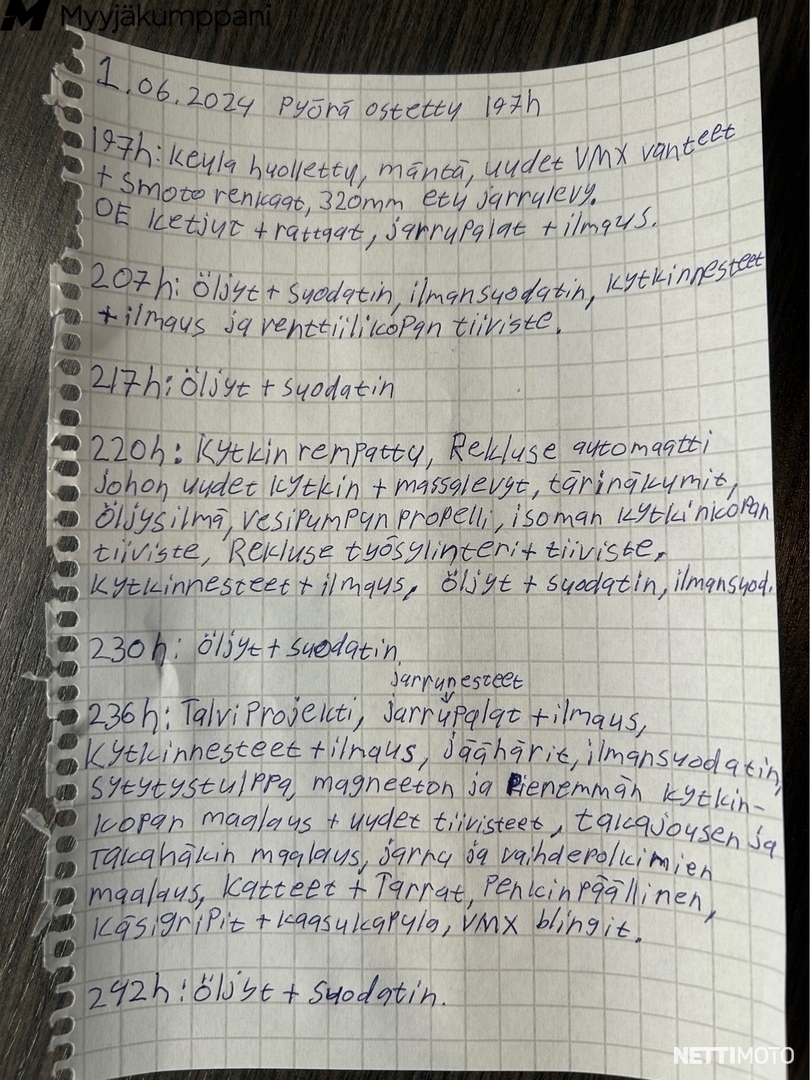 Myyjäkumppani
1.06.2024 Pyörä ostettu 197h
197h: keula huollettu, mäntä, uudet VMX vanteet
+ Smoto renkaat, 320mm etu jarrulevy.
OE ketjut + rattaat, jarrupalat + ilmaus.
207h: Öljyt + suodatin, ilmansuodatin, kytkinnesteet
+ ilmaus ja venttiilikopan tiiviste.
217h: Öljyt + suodatin
220h: Kytkin rempattu, Rekluse automaatti
johon uudet kytkin + massalevyt, tärinäkumit,
öljysilmä, vesipumpan propelli, isoman kytkinkopan
tiiviste, Rekluse työsylinteri + tiiviste,
kytkinnesteet + ilmaus, öljyt + suodatin, ilmansuod.
230h: öljyt + suodatin
jarrunesteet
236h: Talviprojekti, jarrupalat + ilmaus,
kytkinnesteet + ilmaus, jäähärit, ilmansuodatin,
sytytystulppa, magneeton ja Pienemmän kytkin-
kopan maalaus + uudet tiivisteet, takajousen ja
takahäkin maalaus, jarru ja vaihdepolkimien
maalaus, Katteet + Tarrat, Penkinpäällinen,
Käsigripit + kaasukapula, VMX blingit.
242h: Öljyt + Suodatin.
NETTIMOTO